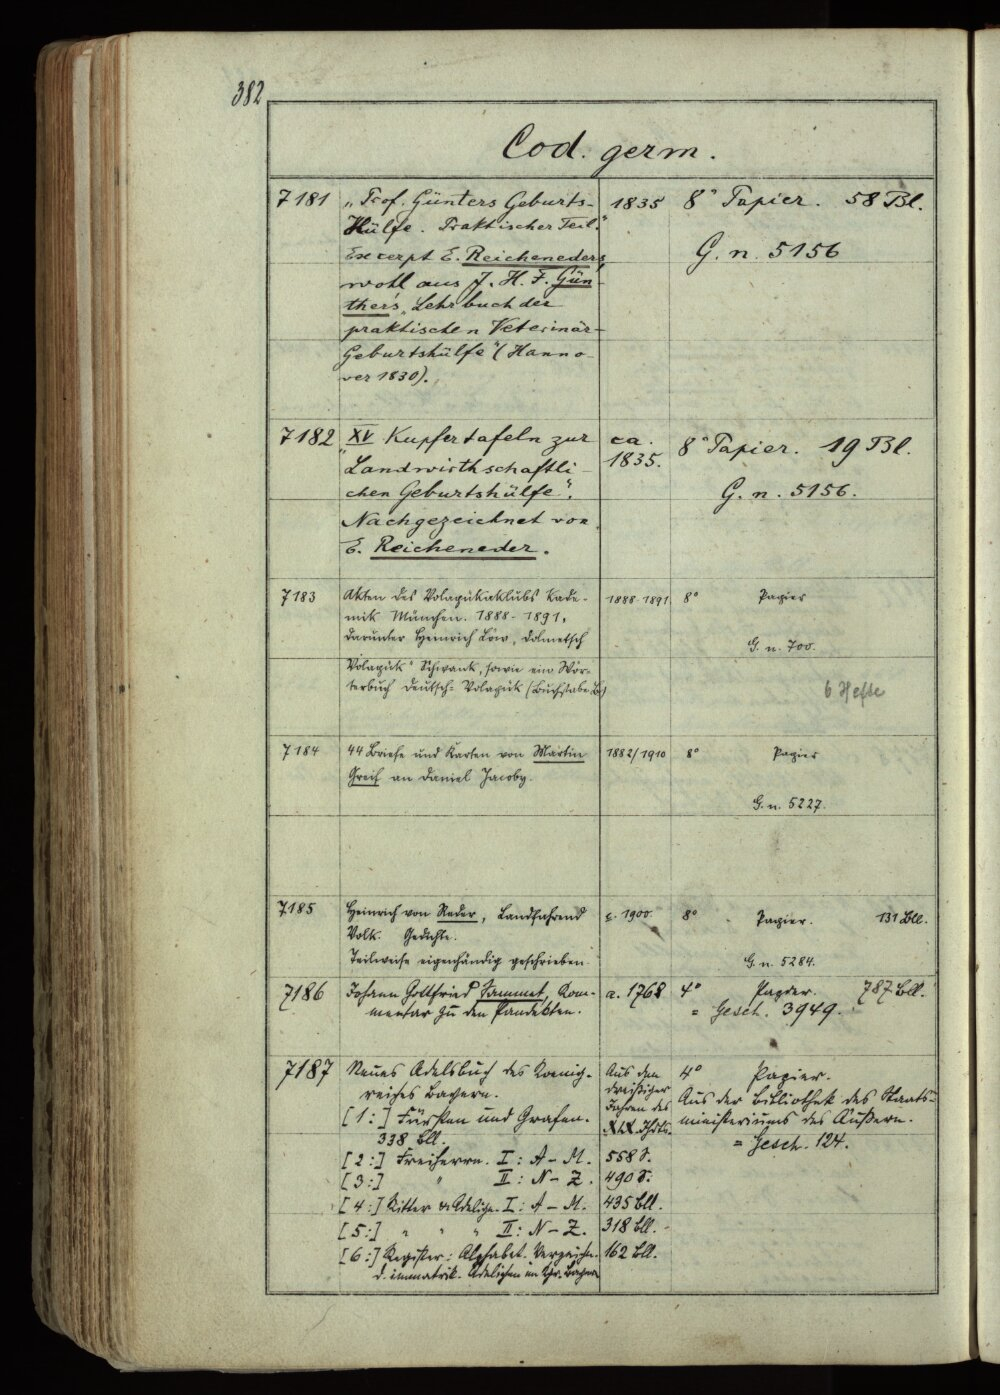 382
Cod. germ.
7181 „Prof. Günters Geburts- 1835 8° Papier. 58 Bl.
Hülfe. Praktischer Teil."
Excerpt E. Reicheneders, G. n. 5156
wohl aus J. H. F. Gün-
ther's „Lehrbuch der
praktischen Veterinär-
Geburtshülfe" (Hanno-
ver 1830).
7182 „XV Kupfertafeln zur ca. 8° Papier. 19 Bl.
Landwirthschaftli- 1835.
chen Geburtshülfe". G. n. 5156.
Nachgezeichnet von
E. Reicheneder.
7183 Akten des Volapükaklubs Kade- 1888-1891. 8° Papier
mik München. 1888-1891,
darunter Heinrich Löw, dolmetsch G. n. 700.
Volapük" Schwank, sowie ein Wör-
terbuch Deutsch-Volapük (Buchstabe B) 6 Hefte
7184 44 Briefe und Karten von Martin 1882/1910 8° Papier
Greif an Daniel Jacoby.
G. n. 5227.
7185 Heinrich von Reder, Landfahrend c. 1900. 8° Papier. 131 Bll.
Volk. Gedichte.
Teilweise eigenhändig geschrieben. G. n. 5284.
7186 Johann Gottfried Sammet, Kom- a. 1768 4° Papier. 787 Bll.
mentar zu den Pandekten. = Gesch. 3949.
7187 Neues Adelsbuch des Koenig- Aus den 4° Papier.
reiches Bayern. dreißiger Aus der Bibliothek des Staats-
[1:] Fürsten und Grafen. Jahren des ministeriums des Äußern.
338 Bll. XIX. Jhdts. = Gesch. 124.
[2:] Freiherrn. I: A-M. 558 S.
[3:] " II: N-Z. 490 S.
[4:] Ritter u. Adelige. I: A-M. 435 Bll.
[5:] " " " II: N-Z. 318 Bll.
[6:] Register: Alphabet. Verzeichn. 162 Bll.
d. immatrik. Adeligen im Kgr. Bayern